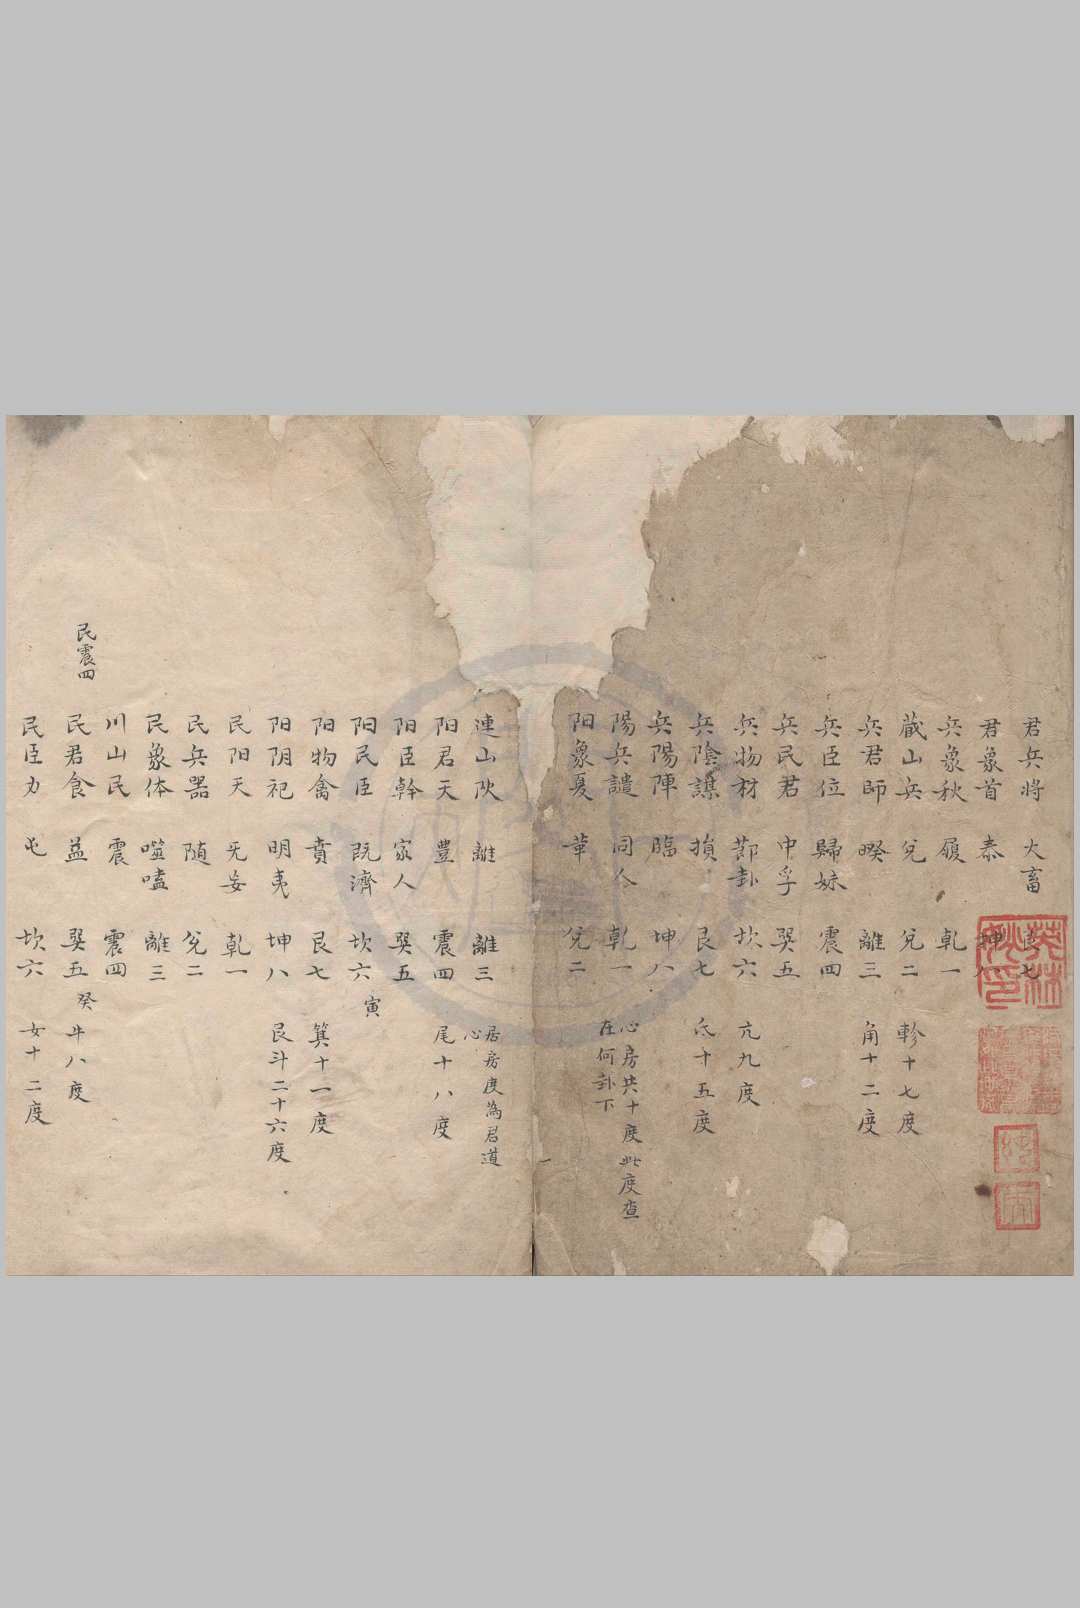 君兵將　大畜　艮七
君象首　泰　坤八
兵象秋　履　乾一
蔵山兵　兌　兌二　軫十七度
兵君師　睽　離三　角十二度
兵臣位　歸妹　震四
兵民君　中孚　巽五
兵物材　節卦　坎六　亢九度
兵陰謀　損　艮七　氐十五度
兵陽陣　臨　坤八
陽兵譴　同人　乾一　心房共十度此度查
在何卦下
阳象夏　革　兌二
連山阳　離　離三　居房度為君道
心
阳君天　豊　震四　尾十八度
阳臣幹　家人　巽五
阳民臣　既濟　坎六　寅
阳物禽　賁　艮七　箕十一度
阳阴祀　明夷　坤八　艮斗二十六度
民阳天　无妄　乾一
民兵器　随　兌二
民象体　噬嗑　離三
川山民　震　震四
民震四
民君食　益　巽五　癸　牛八度
民臣力　屯　坎六　女十二度